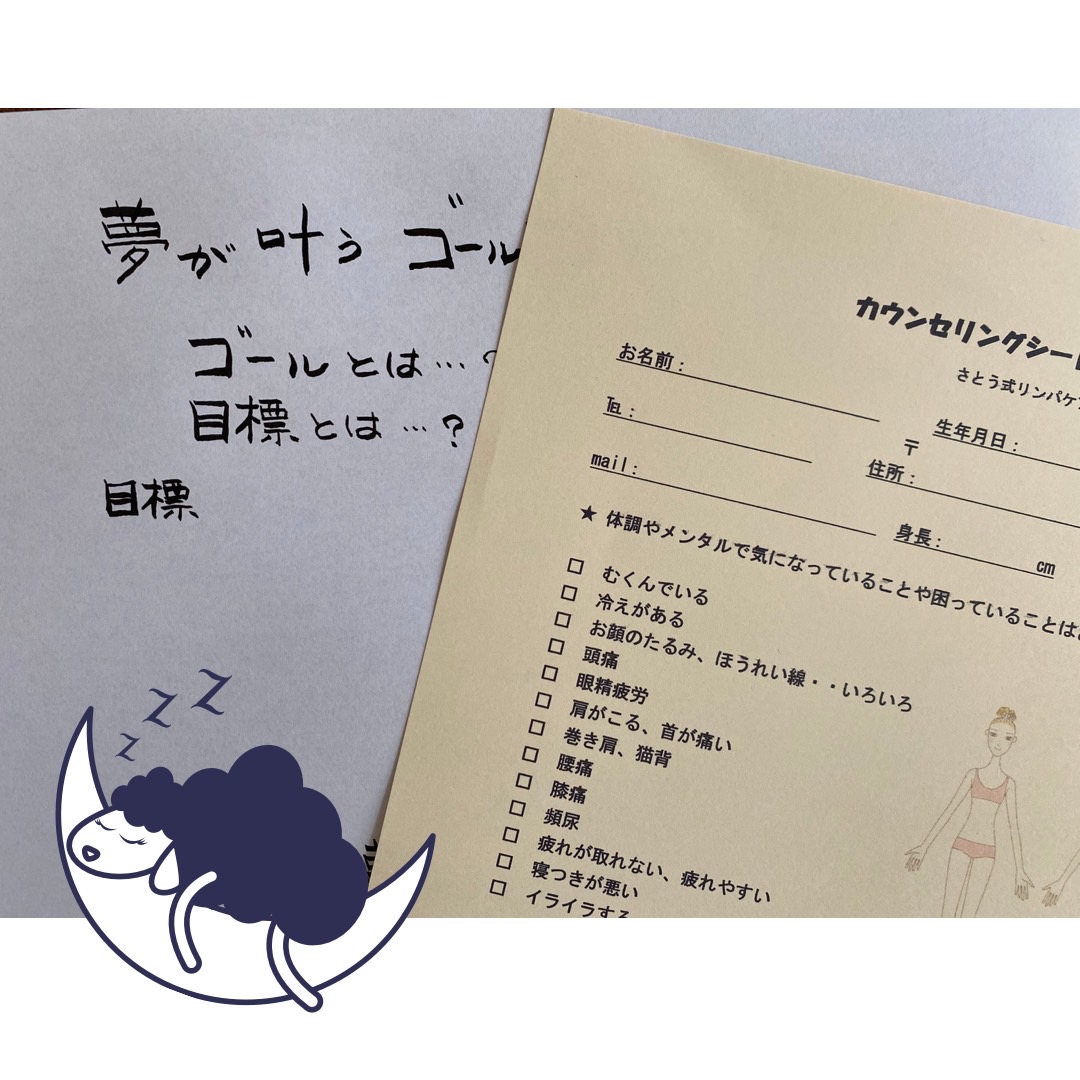 夢が叶う ゴール
ゴールとは…?
目標とは…?
目標
カウンセリングシート
さとう式リンパケア
お名前：
℡：
生年月日：
〒
mail：
住所：
身長：
cm
★ 体調やメンタルで気になっていることや困っていることは
□ むくんでいる
□ 冷えがある
□ お顔のたるみ、ほうれい線・・いろいろ
□ 頭痛
□ 眼精疲労
□ 肩がこる、首が痛い
□ 巻き肩、猫背
□ 腰痛
□ 膝痛
□ 頻尿
□ 疲れが取れない、疲れやすい
□ 寝つきが悪い
□ イライラする
z z z